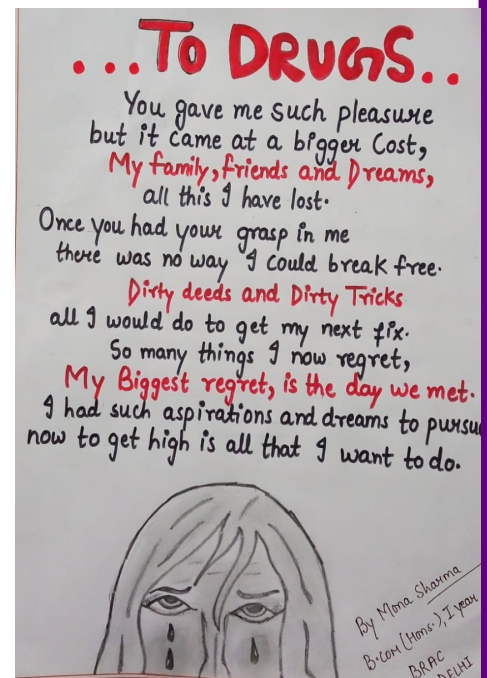 ...TO DRUGS..
You gave me such pleasure
but it came at a bigger Cost,
My family, friends and Dreams,
all this I have lost.
Once you had your grasp in me
there was no way I could break free.
Dirty deeds and Dirty Tricks
all I would do to get my next fix.
So many things I now regret,
My Biggest regret, is the day we met.
I had such aspirations and dreams to pursu
now to get high is all that I want to do.
By Mona Sharma
B.COM (Hons.), I year
BRAC
DELHI